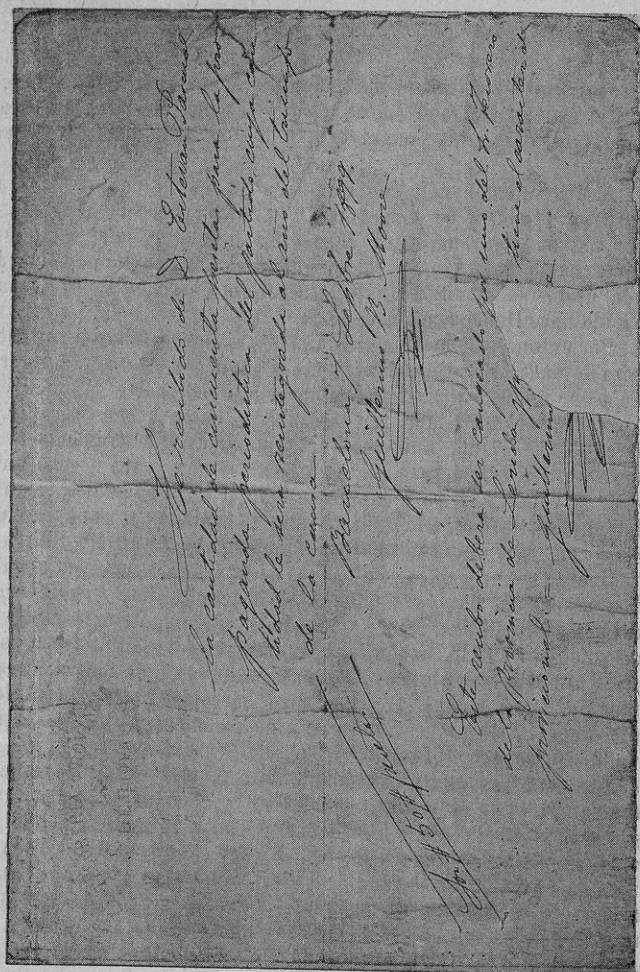 He recibido de D. Esteban
la cantidad de cincuenta pesetas para la pro
paganda periodística del partido, cuya can
tidad le será reintegrada al año del triunfo
de la causa.
Barcelona 7 Sepbre 1897
Guillermo B. Mora
Son #50# pesetas
Este recibo deberá ser cangeado por uno del
de la Provincia de Lérida, tiene el carácter de
provisional =
Guillermo